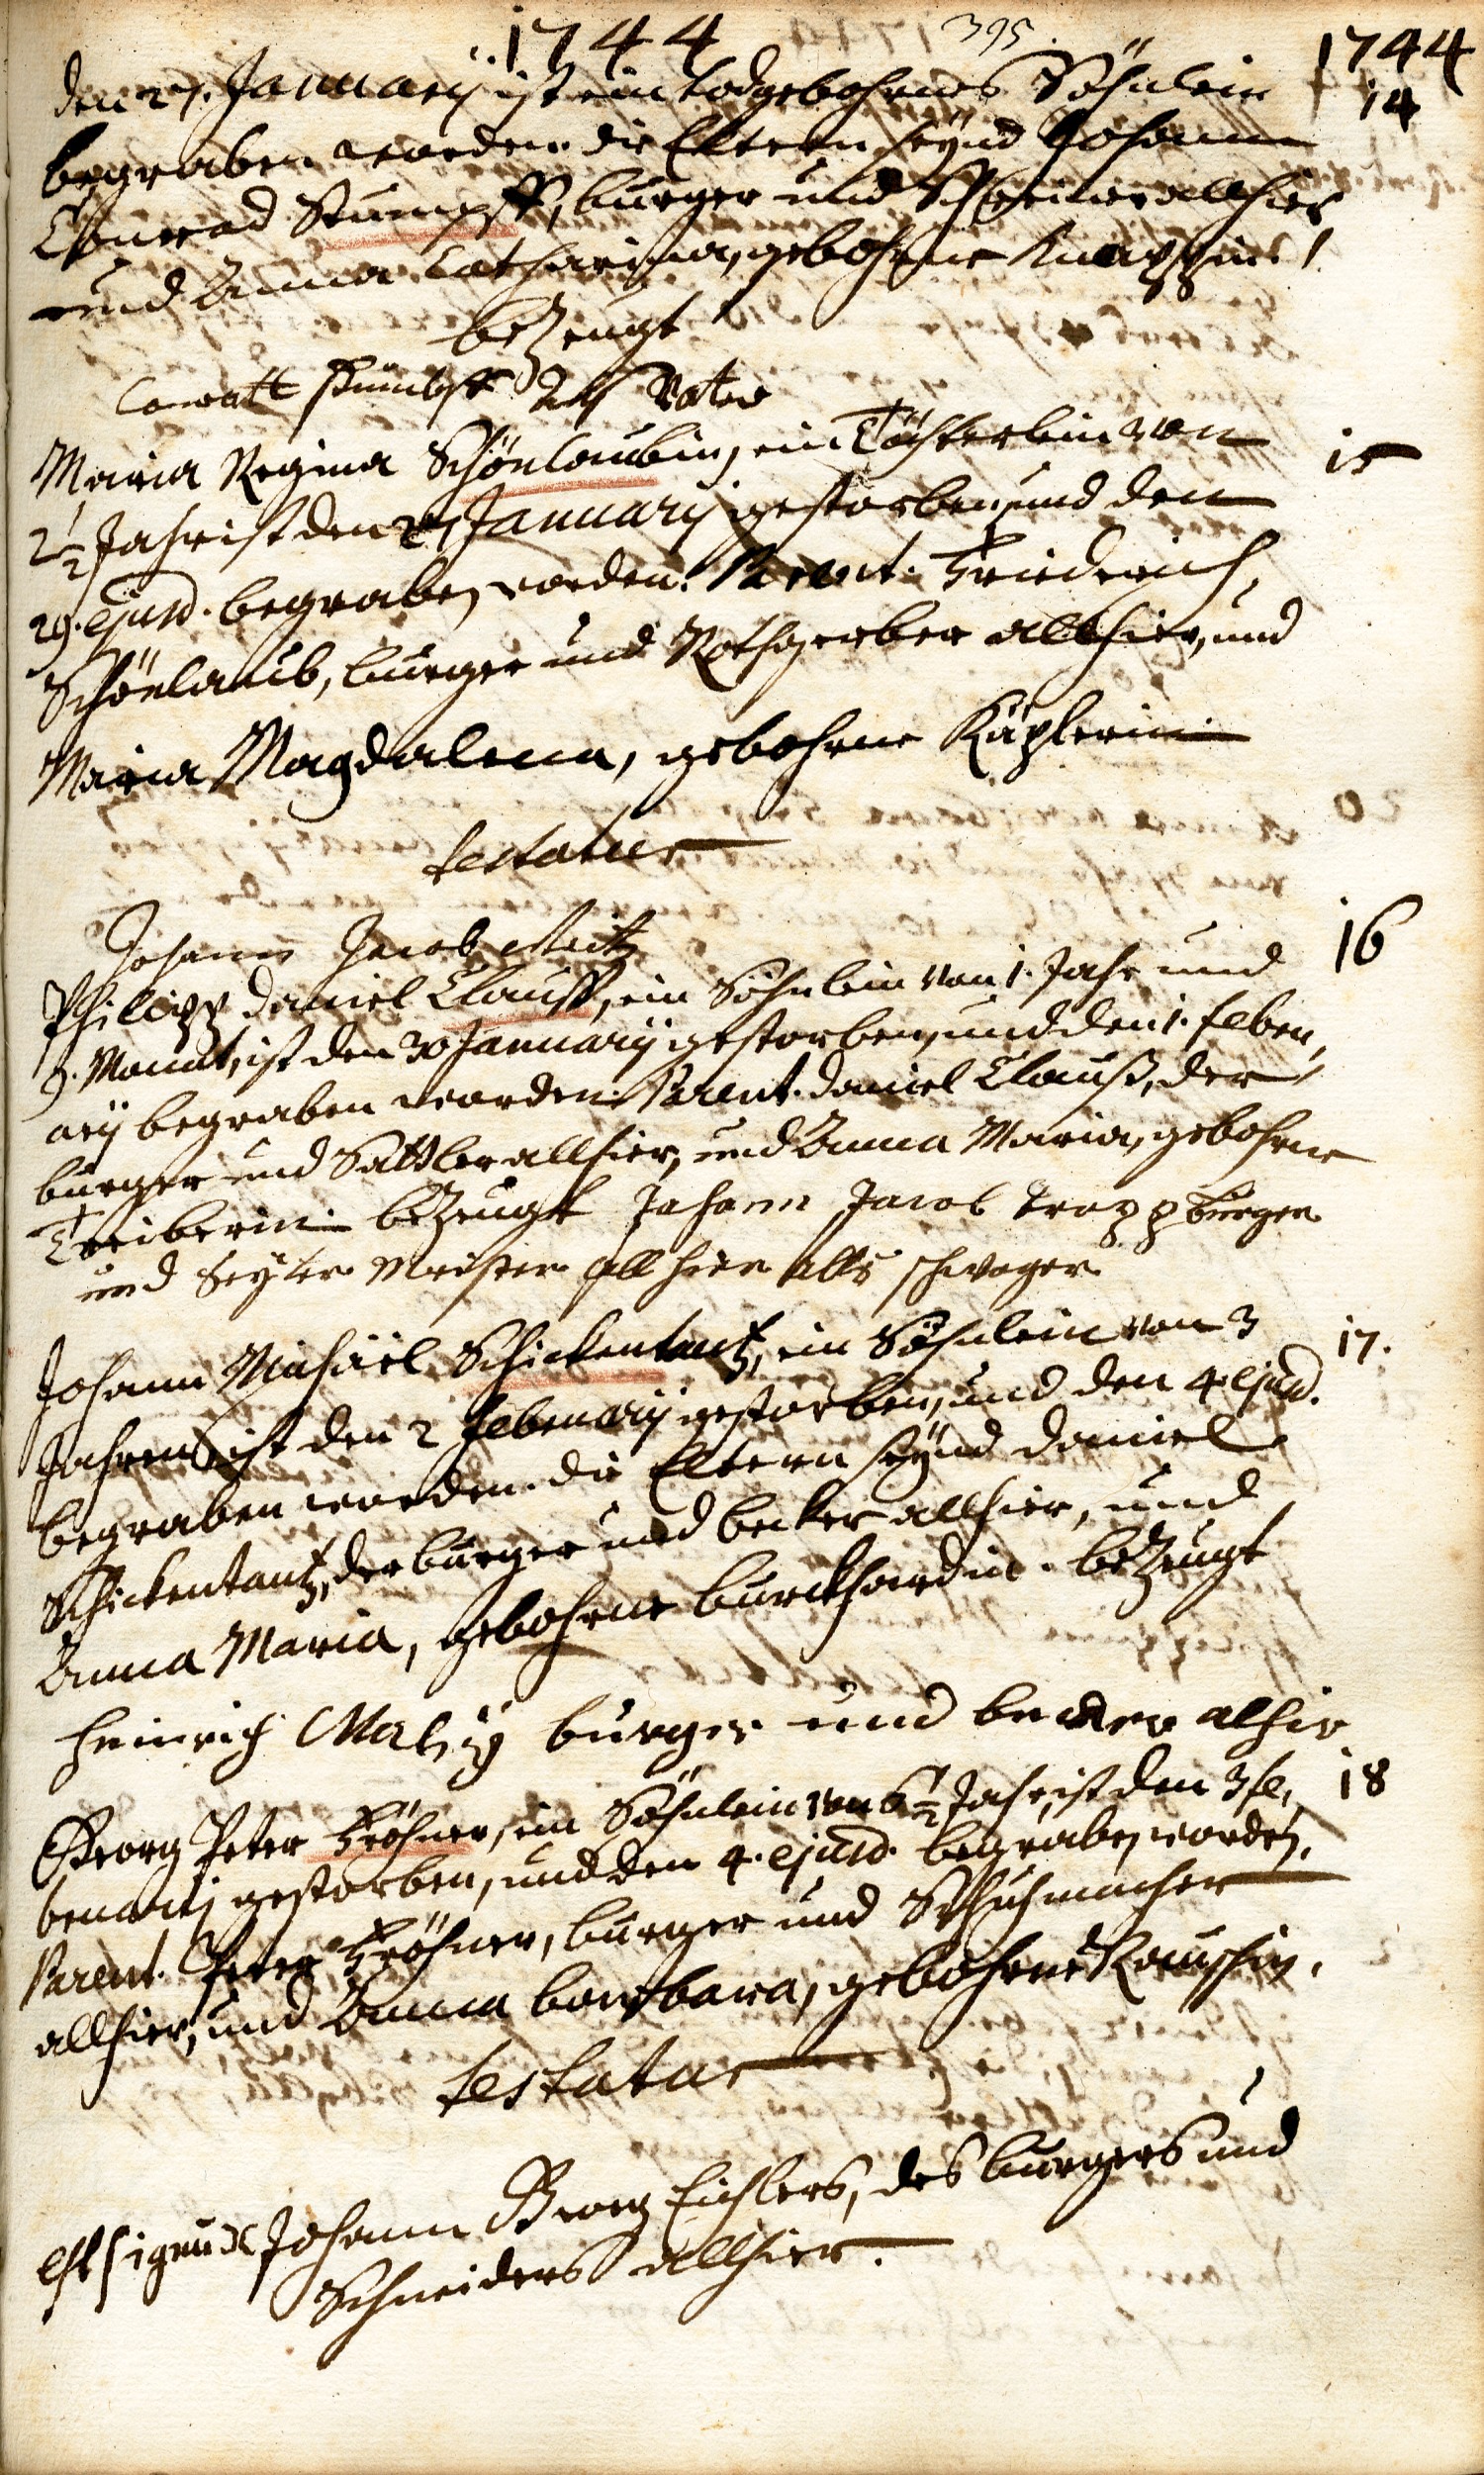 1744 395. 1744
den 27. Januarij ist ein todgebohrnes Söhnlein 14
begraben worden. die Eltern seynd Johann
Conrad Stumpff, burger und Schreiner allhier
und Anna Catharina, gebohrne Knappin.
bezeugt
Conratt stumbff als Vater
Maria Regina Schönlaubin, ein Töchterlein von 15
2½ Jahr ist den 27 Januarij gestorben, und den
29. ejusd. begraben worden. Parent. Friederich
Schönlaub, burger und Rothgerber allhier, und
Maria Magdalena, gebohrne Käplerin
testatur
Johann Jacob
Philipp Daniel Clauss, ein Söhnlein von 1. Jahr und 16
9. Monat, ist den 30 Januarij gestorben, und den 1. Febru
arij begraben worden. Parent. Daniel Clauß, der
burger und Sattler allhier, und Anna Maria, gebohrne
Treiberin. bezeugt Johann Jacob Trapp burger
und Seyler Meister allhier alls schwager
Johann Michaël Schickentantz, ein Söhnlein von 3 17.
Jahren ist den 2 Februarij gestorben, und den 4. ejusd.
begraben worden. die Eltern seynd Daniel
Schickentantz, der burger und becker allhier, und
Anna Maria, gebohrne burckhardin. bezeugt
Heinrich burger und becker alhir
Georg Peter Fröhner, ein Söhnlein von 6½ Jahr, ist den 3 Fe, 18
bruarij gestorben, und den 4. ejusd. begraben worden.
Parent. Peter Fröhner, burger und Schuhmacher
allhier, und Anna barbara, gebohrne Rauschin.
testatur
Johann Georg Eichlers, des burgers und
Schneiders allhier.